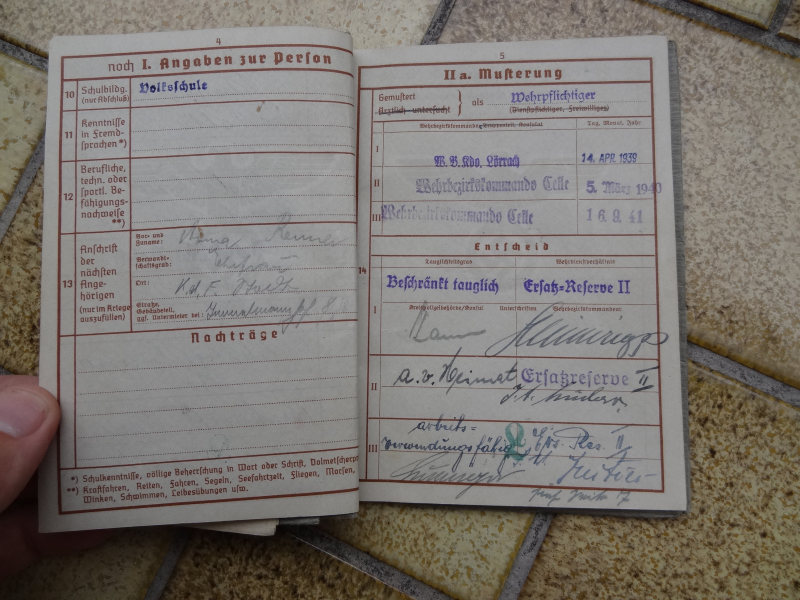 4
noch I. Angaben zur Person
10 Schulbildg. (nur Abschluß)
Volksschule
11 Kenntnisse in Fremd-sprachen *)
12 Berufliche, techn. oder sportl. Be-fähigungs-nachweise **)
13 Anschrift der nächsten Ange-hörigen (nur im Kriege auszufüllen)
Vor- und Zuname:
Renner
Verwandt-schaftsgrad:
Ehefrau
Ort:
K.d.F. Stadt
Straße, Gebäudeteil, ggf. Untermieter bei:
Nachträge
*) Schulkenntnisse, völlige Beherrschung in Wort oder Schrift, Dolmetscherpr
**) Kraftfahren, Reiten, Fahren, Segeln, Seefahrtzeit, Fliegen, Morsen,
Winken, Schwimmen, Leibesübungen usw.
5
II a. Musterung
Gemustert
Ärztlich untersucht
als
Wehrpflichtiger
(Dienstpflichtiger, Freiwilliger)
Wehrbezirkskommando
Tag, Monat, Jahr
I
W. B. Kdo. Lörrach
14. APR. 1939
II
Wehrbezirkskommando Celle
5. März 1940
III
Wehrbezirkskommando Celle
16. 9. 41
Entscheid
14
Tauglichkeitsgrad
Wehrdienstverhältnis
Beschränkt tauglich
Ersatz-Reserve II
I
Kreispolizeibehörde/Konsul
Unterschriften
Wehrbezirkskommandeur
II
a. v. Heimat
Ersatzreserve II
III
arbeits-
verwendungsfähig